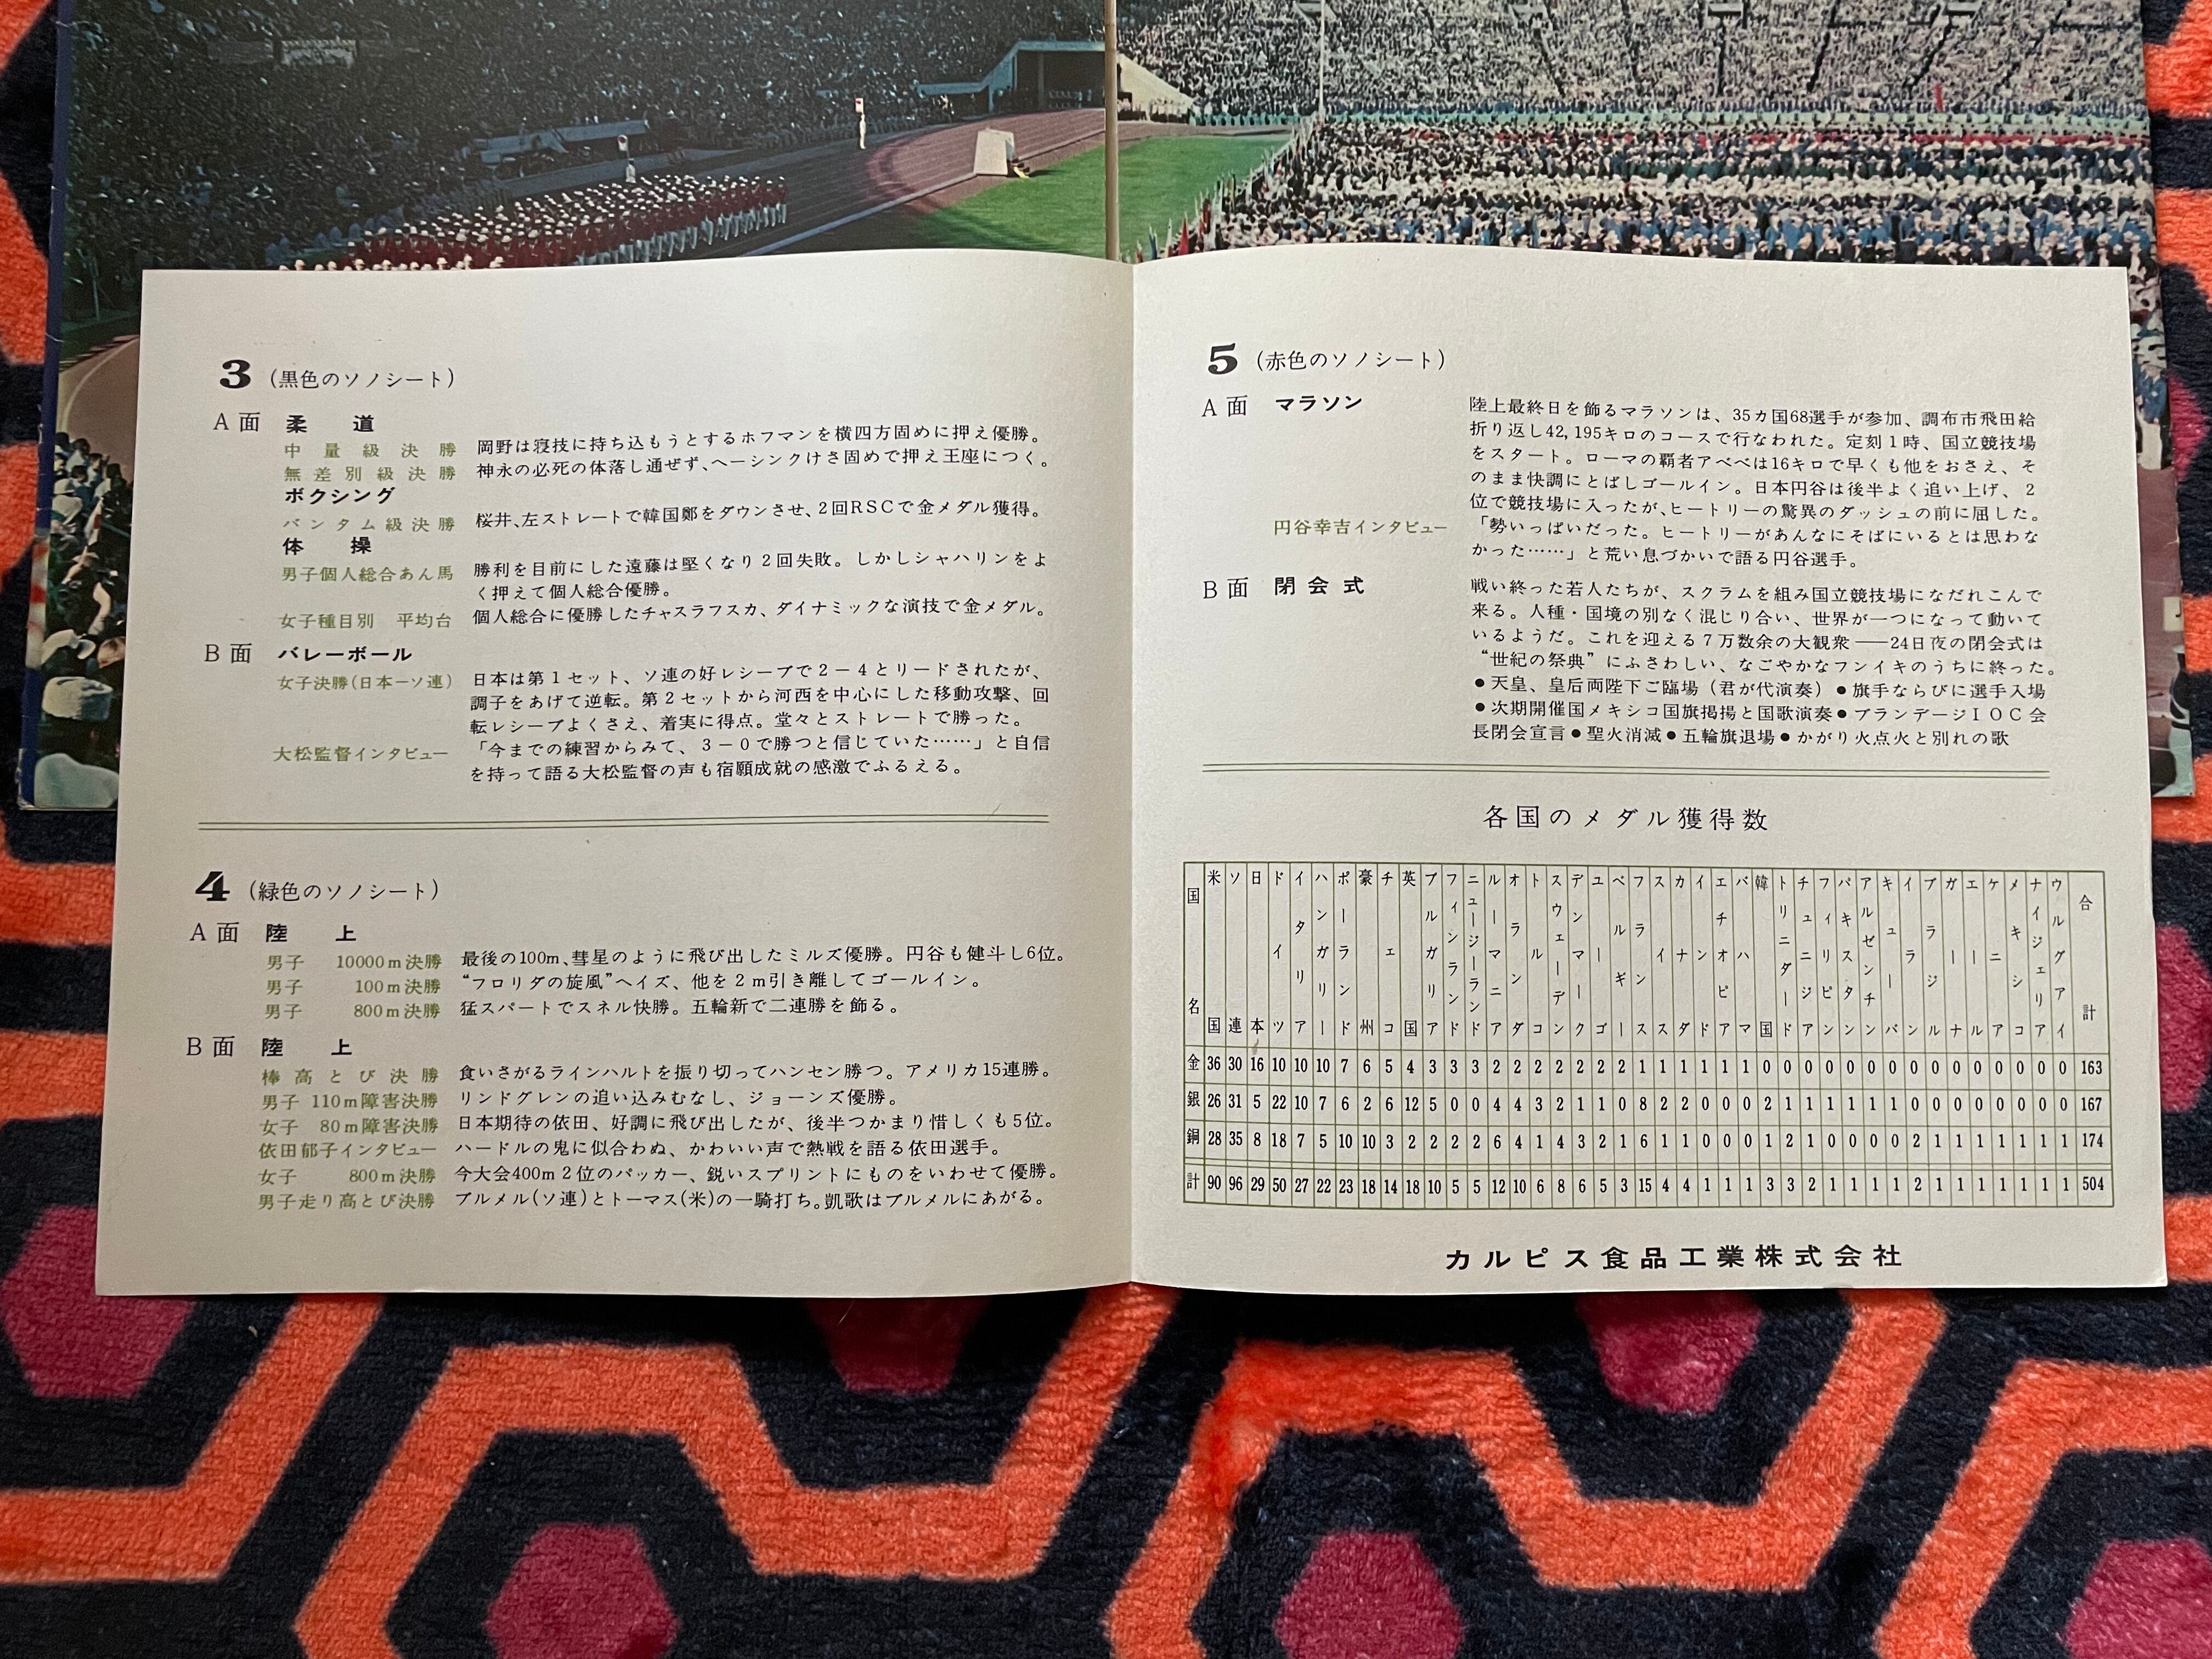 3 (黒色のソノシート)
A面 柔道
中量級決勝 岡野は寝技に持ち込もうとするホフマンを横四方固めに押え優勝。
無差別級決勝 神永の必死の体落し通ぜず、ヘーシンクけさ固めで押え王座につく。
ボクシング
バンタム級決勝 桜井、左ストレートで韓国鄭をダウンさせ、2回RSCで金メダル獲得。
体操
男子個人総合あん馬 勝利を目前にした遠藤は堅くなり2回失敗。しかしシャハリンをよ
く押えて個人総合優勝。
女子種目別 平均台 個人総合に優勝したチャスラフスカ、ダイナミックな演技で金メダル。
B面 バレーボール
女子決勝(日本−ソ連) 日本は第1セット、ソ連の好レシーブで2−4とリードされたが、
調子をあげて逆転。第2セットから河西を中心にした移動攻撃、回
転レシーブよくさえ、着実に得点。堂々とストレートで勝った。
大松監督インタビュー 「今までの練習からみて、3−0で勝つと信じていた……」と自信
を持って語る大松監督の声も宿願成就の感激でふるえる。
4 (緑色のソノシート)
A面 陸上
男子 10000m決勝 最後の100m、彗星のように飛び出したミルズ優勝。円谷も健斗し6位。
男子 100m決勝 “フロリダの旋風”ヘイズ、他を2m引き離してゴールイン。
男子 800m決勝 猛スパートでスネル快勝。五輪新で二連勝を飾る。
B面 陸上
棒高とび決勝 食いさがるラインハルトを振り切ってハンセン勝つ。アメリカ15連勝。
男子 110m障害決勝 リンドグレンの追い込みむなし、ジョーンズ優勝。
女子 80m障害決勝 日本期待の依田、好調に飛び出したが、後半つかまり惜しくも5位。
依田郁子インタビュー ハードルの鬼に似合わぬ、かわいい声で熱戦を語る依田選手。
女子 800m決勝 今大会400m2位のパッカー、鋭いスプリントにものをいわせて優勝。
男子走り高とび決勝 ブルメル(ソ連)とトーマス(米)の一騎打ち。凱歌はブルメルにあがる。
5 (赤色のソノシート)
A面 マラソン 陸上最終日を飾るマラソンは、35カ国68選手が参加、調布市飛田給
折り返し42,195キロのコースで行なわれた。定刻1時、国立競技場
をスタート。ローマの覇者アベベは16キロで早くも他をおさえ、そ
のまま快調にとばしゴールイン。日本円谷は後半よく追い上げ、2
位で競技場に入ったが、ヒートリーの驚異のダッシュの前に屈した。
円谷幸吉インタビュー 「勢いっぱいだった。ヒートリーがあんなにそばにいるとは思わな
かった……」と荒い息づかいで語る円谷選手。
B面 閉会式 戦い終った若人たちが、スクラムを組み国立競技場になだれこんで
来る。人種・国境の別なく混じり合い、世界が一つになって動いて
いるようだ。これを迎える7万数余の大観衆――24日夜の閉会式は
“世紀の祭典”にふさわしい、なごやかなフンイキのうちに終った。
●天皇、皇后両陛下ご臨場（君が代演奏）●旗手ならびに選手入場
●次期開催国メキシコ国旗掲揚と国歌演奏●ブランデージIOC会
長閉会宣言●聖火消滅●五輪旗退場●かがり火点火と別れの歌
各国のメダル獲得数
国名 米国 ソ連 日本 ドイツ イタリア ハンガリー ポーランド 豪州 チェコ 英国 ブルガリア フィンランド ニュージーランド ルーマニア オランダ トルコ スウェーデン デンマーク ユーゴ ベルギー フランス スイス カナダ インド エチオピア バハマ 韓国 トリニダード チュニジア フィリピン パキスタン アルゼンチン キューバ イラン ブラジル ガーナ エール ケニア メキシコ ナイジェリア ウルグアイ 合計
金 36 30 16 10 10 10 7 6 5 4 3 3 3 2 2 2 2 2 2 2 1 1 1 1 1 1 0 0 0 0 0 0 0 0 0 0 0 0 0 0 0 163
銀 26 31 5 22 10 7 6 2 6 12 5 0 0 4 4 3 2 1 1 0 8 2 2 0 0 0 2 1 1 1 1 1 1 0 0 0 0 0 0 0 0 167
銅 28 35 8 18 7 5 10 10 3 2 2 2 2 6 4 1 4 3 2 1 6 1 1 0 0 0 1 2 1 0 0 0 0 2 1 1 1 1 1 1 1 174
計 90 96 29 50 27 22 23 18 14 18 10 5 5 12 10 6 8 6 5 3 15 4 4 1 1 1 3 3 2 1 1 1 1 2 1 1 1 1 1 1 1 504
カルピス食品工業株式会社